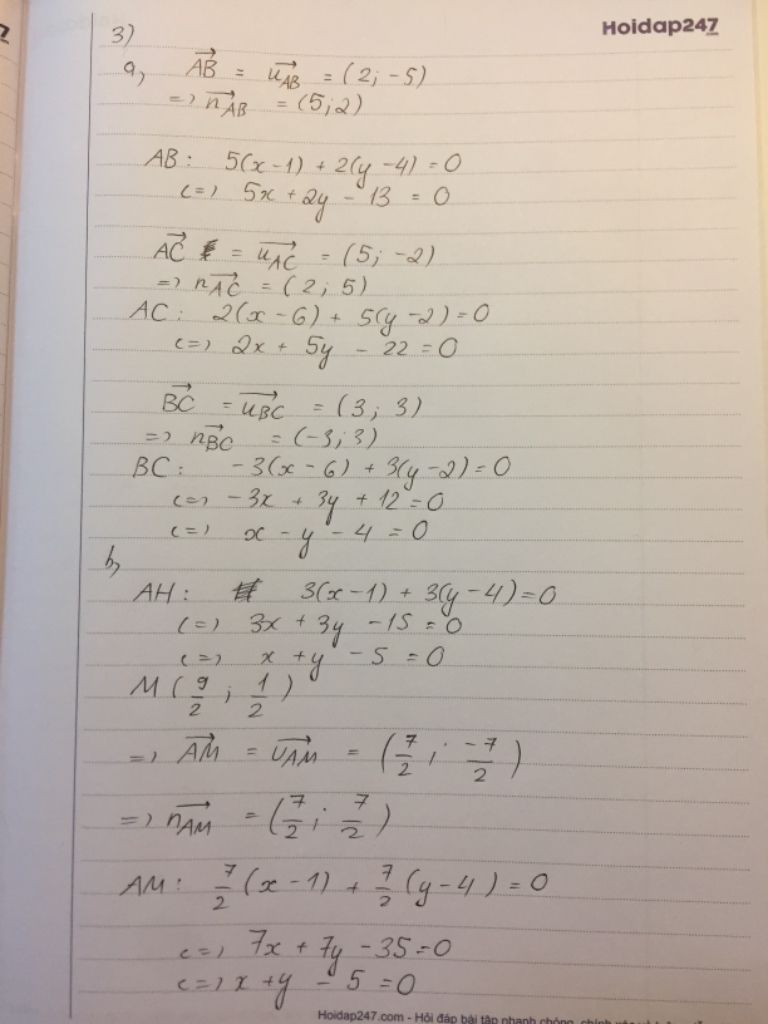 Hoidap247
3)
a, $\overrightarrow{AB} = \overrightarrow{u_{AB}} = (2; -5)$
=> $\overrightarrow{n_{AB}} = (5; 2)$
AB: 5(x-1) + 2(y-4) = 0
<=> 5x + 2y - 13 = 0
$\overrightarrow{AC} = \overrightarrow{u_{AC}} = (5; -2)$
=> $\overrightarrow{n_{AC}} = (2; 5)$
AC: 2(x-6) + 5(y-2) = 0
<=> 2x + 5y - 22 = 0
$\overrightarrow{BC} = \overrightarrow{u_{BC}} = (3; 3)$
=> $\overrightarrow{n_{BC}} = (-3; 3)$
BC: -3(x-6) + 3(y-2) = 0
<=> -3x + 3y + 12 = 0
<=> x - y - 4 = 0
b,
AH: 3(x-1) + 3(y-4) = 0
<=> 3x + 3y - 15 = 0
<=> x + y - 5 = 0
$M(\frac{9}{2}; \frac{1}{2})$
=> $\overrightarrow{AM} = \overrightarrow{u_{AM}} = (\frac{7}{2}; \frac{-7}{2})$
=> $\overrightarrow{n_{AM}} = (\frac{7}{2}; \frac{7}{2})$
AM: $\frac{7}{2}(x-1) + \frac{7}{2}(y-4) = 0$
<=> 7x + 7y - 35 = 0
<=> x + y - 5 = 0
Hoidap247.com - Hỏi đáp bài tập nhanh chóng, chính xác